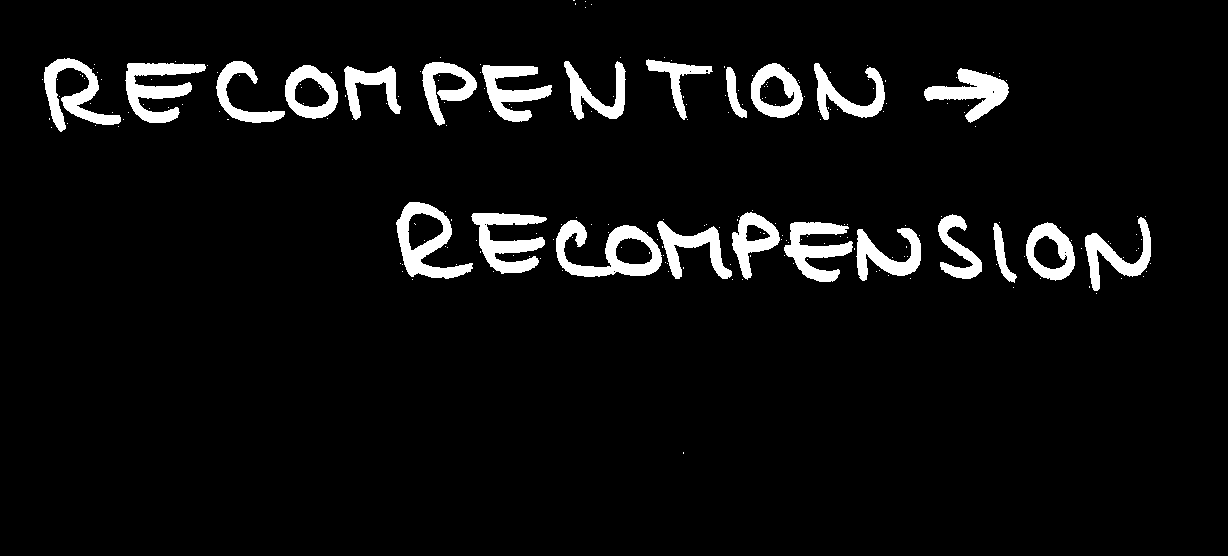 RECOMPENTION →
RECOMPENSION